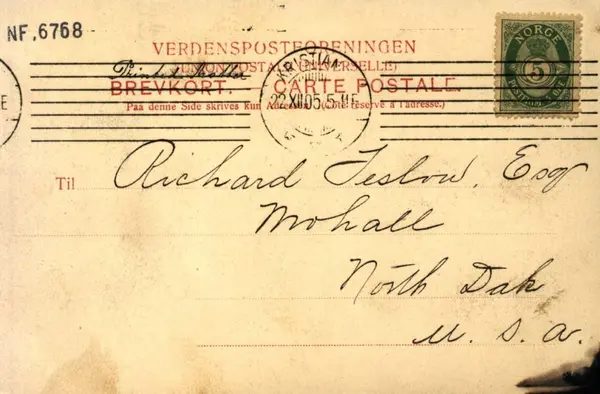 NF.6768
NORGE
5
VERDENSPOSTFORENINGEN
(UNION POSTALE UNIVERSELLE)
Printed Matter
BREVKORT. CARTE POSTALE.
Paa denne Side skrives kun Adressen. (Côté réservé à l'adresse.)
KRISTIANIA
22 XII 05. 5-
Til Richard Teslow, Esq
Mohall
North Dak
U. S. A.